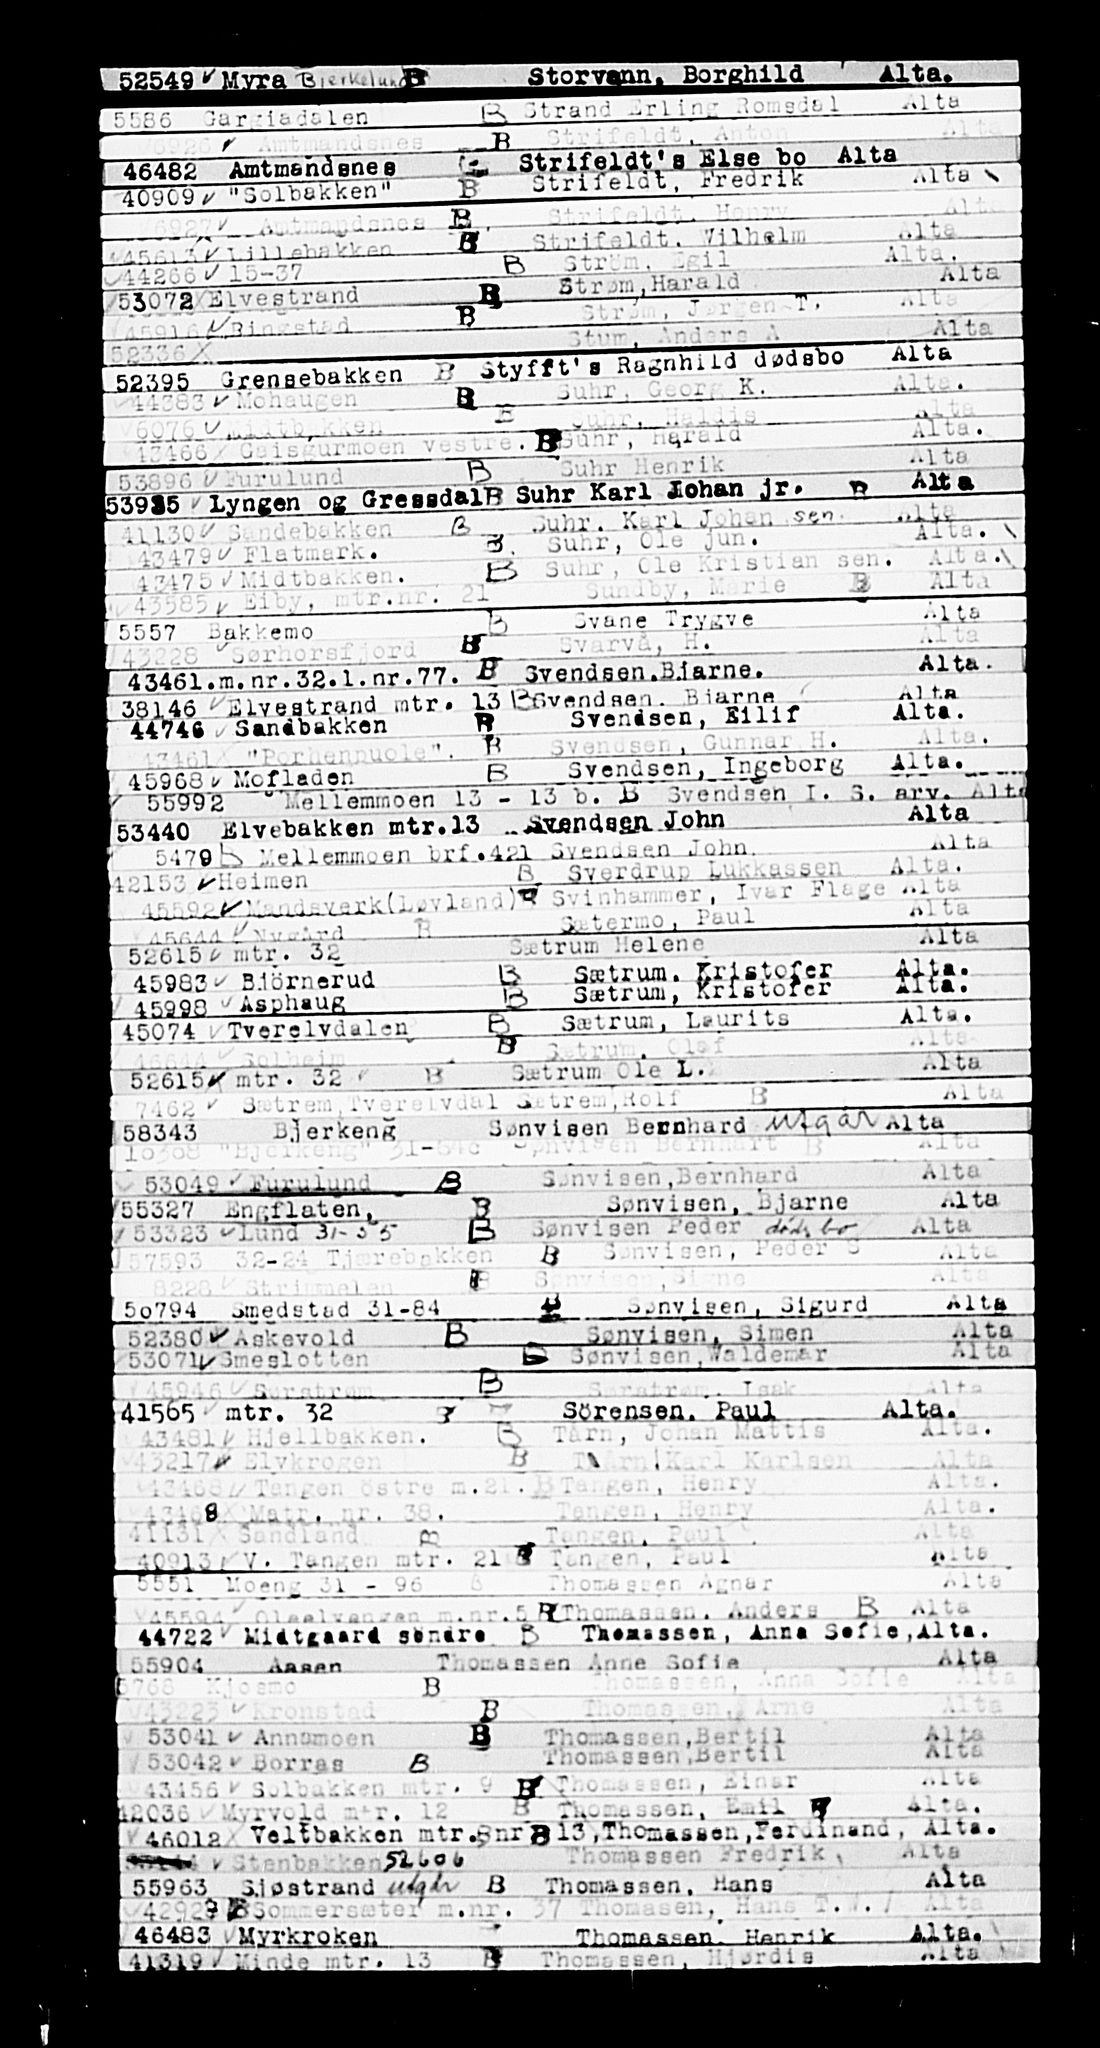 52549 ✓ Myra Bjerkelund B Storvann, Borghild Alta.
5586 Gargiadalen B Strand Erling Romsdal Alta
6926 ✓ Amtmandsnes B Strifeldt, Anton Alta
46482 Amtmandsnes Strifeldt's Else bo Alta
40909 ✓ "Solbakken" B Strifeldt, Fredrik Alta
6927 ✓ Amtmandsnes B Strifeldt, Henry Alta
45613 ✓ Lillebakken B Strifeldt. Wilhelm Alta
44266 ✓ 15-37 B Ström, Egil Alta.
53072 X Elvestrand B Strøm, Harald Alta
45916 ✓ Ringstad B Strøm, Jørgen T. Alta
52336 X Stum, Anders A Alta
52395 Grensebakken B Styfft's Ragnhild dødsbo Alta
44383 ✓ Mohaugen B Suhr, Georg K. Alta.
6076 ✓ Midtbakken B Suhr, Haldis Alta
43466 X Gaisgurmoen vestre. B Suhr, Harald Alta.
53896 ✓ Furulund B Suhr Henrik Alta
53985 ✓ Lyngen og Gressdal B Suhr Karl Johan jr. B Alta
41130 ✓ Sandebakken B Suhr. Karl Johan sen. Alta
43479 ✓ Flatmark. B. Suhr, Ole jun. Alta.
43475 ✓ Midtbakken. B Suhr, Ole Kristian sen. Alta.
43585 ✓ Eiby, mtr.nr. 21 Sundby, Marie B Alta
5557 Bakkemo B Svane Trygve Alta
43228 ✓ Sørhorsfjord B Svarvå, H. Alta
43461.m.nr.32.l.nr.77. B Svendsen.Bjarne. Alta.
38146 ✓ Elvestrand mtr. 13 B Svendsen. Bjarne Alta
44746 ✓ Sandbakken B Svendsen, Eilif Alta.
43461 X "Porhenpuole". B Svendsen, Gunnar H. Alta.
45968 ✓ Mofladen B Svendsen, Ingeborg Alta.
55992 Mellemmoen 13 - 13 b. B Svendsen I. S. arv. Alta
53440 Elvebakken mtr.13 Svendsen John Alta
5479 B Mellemmoen brf.421 Svendsen John Alta
42153 ✓ Heimen B Sverdrup Lukkassen Alta.
45592 ✓ Mandsverk(Løvland) B Svinhammer, Ivar Flage Alta
45644 ✓ Nygård B Sætermo, Paul Alta
52615 ✓ mtr. 32 Sætrum Helene Alta
45983 ✓ Björnerud B Sætrum. Kristofer Alta.
45998 ✓ Asphaug B Sætrum, Kristofer Alta.
45074 ✓ Tverelvdalen B Sætrum, Laurits Alta.
46644 ✓ Solheim B Sætrum, Olaf Alta
52615 ✓ mtr. 32 B Sætrum Ole L. Alta
7462 ✓ Sætrem, Tverelvdal Sætrem, Rolf B Alta
58343 Bjerkeng Sønvisen Bernhard utgår Alta
"Bjerkeng" Sønvisen Bernhart B Alta
53049 ✓ Furulund B Sønvisen, Bernhard Alta
55327 Engflaten, B Sønvisen, Bjarne Alta
53323 ✓ Lund 31-55 B Sønvisen Peder døds bo Alta
57593 32-24 Tjærebakken B Sønvisen, Peder S Alta
8228 ✓ Strimmelen B Sønvisen, Signe Alta
50794 Smedstad 31-84 Sønvisen, Sigurd Alta
52380 ✓ Askevold B Sønvisen, Simen Alta
53071 ✓ Smeslotten B Sønvisen, Waldemar Alta
45946 ✓ Sørstrøm B Sørstrøm. Isak Alta
41565 ✓ mtr. 32 B Sörensen. Paul Alta.
43481 ✓ Hjellbakken. B Tårn, Johan Mattis Alta.
43217 ✓ Elvkrogen B Tårn, Karl Karlsen Alta
43468 ✓ Tangen östre m.21. B Tangen, Henry Alta.
43468 Matr. nr. 38. Tangen, Henry Alta.
41131 X Sandland B Tangen, Paul Alta
40913 ✓ V. Tangen mtr. 21 B Tangen, Paul Alta
5551 Moeng 31 - 96 B Thomassen Agnar Alta
45594 ✓ Olaelvengen m.nr.5 B Thomassen. Anders B Alta
44722 ✓ Midtgaard söndre B Thomassen, Anna Sofie, Alta.
55904 Aasen Thomassen Anne Sofie Alta
5768 Kjosmo B Thomassen, Anna Sofie Alta
43223 ✓ Kronstad B Thomassen, Arne Alta
53041 ✓ Annamoen B Thomassen, Bertil Alta
53042 ✓ Borras B Thomassen, Bertil Alta
43456 ✓ Solbakken mtr. 9 B Thomassen, Einar Alta
42036 ✓ Myrvold mtr. 12 B Thomassen, Emil B Alta.
46012 X Veltbakken mtr.8nr B 13, Thomassen, Ferdinand, Alta.
✓ Stenbakken 52606 Thomassen Fredrik Alta
55963 Sjøstrand utgår B Thomassen, Hans Alta
42929 B Sommersæter m.nr. 37 Thomasen, Hans T. Alta
46483 ✓ Myrkroken Thomassen. Henrik Alta.
41319 ✓ Minde mtr. 13 B Thomassen, Hjørdis Alta